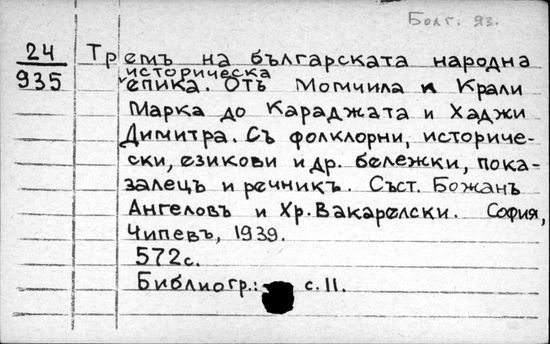 Болг. яз.
24
935
Тремъ на българската народна
историческа
епика. Отъ Момчила и Крали
Марка до Караджата и Хаджи
Димитра. Съ фолклорни, историче-
ски, езикови и др. бележки, пока-
залецъ и речникъ. Съст. Божанъ
Ангеловъ и Хр. Вакарелски. София,
Чипевъ, 1939.
572 с.
Библиогр.: с. 11.